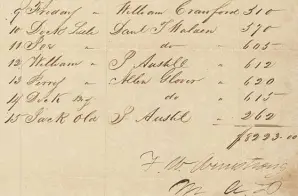 9 Friday " William Crawford 310
10 Dock Little Danl T Watson 370
11 Joe " do 605
12 William " P Austill " 612
13 Perry " Allen Glover " 620
14 Dock Big do " 615
15 Jack Old P Austill " 262
$8223.00
F. W. Armstrong